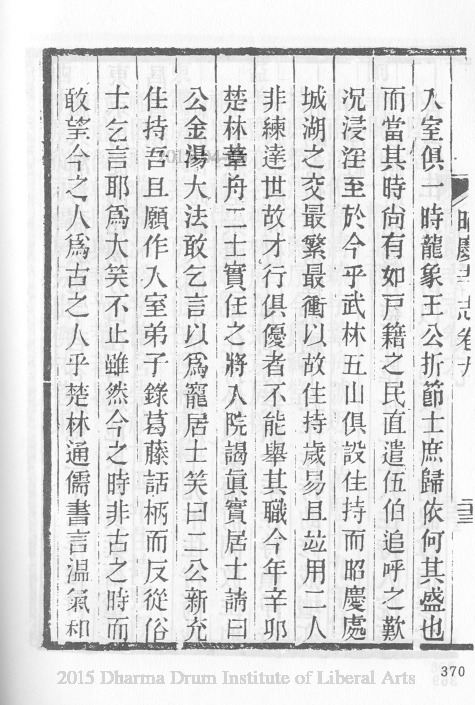 昭慶寺志卷九
入室俱一時龍象王公折節士庶歸依何其盛也
而當其時尙有如戸籍之民直遣伍伯追呼之歎
况浸淫至於今乎武林五山俱設住持而昭慶處
城湖之交最繁最衝以故住持歲易且並用二人
非練達世故才行俱優者不能舉其職今年辛卯
楚林葦舟二士實任之將入院謁眞實居士請曰
公金湯大法敢乞言以爲寵居士笑曰二公新充
住持吾且願作入室弟子錄葛藤話柄而反從俗
士乞言耶爲大笑不止雖然今之時非古之時而
敢望今之人爲古之人乎楚林通儒書言温氣和
370
2015 Dharma Drum Institute of Liberal Arts